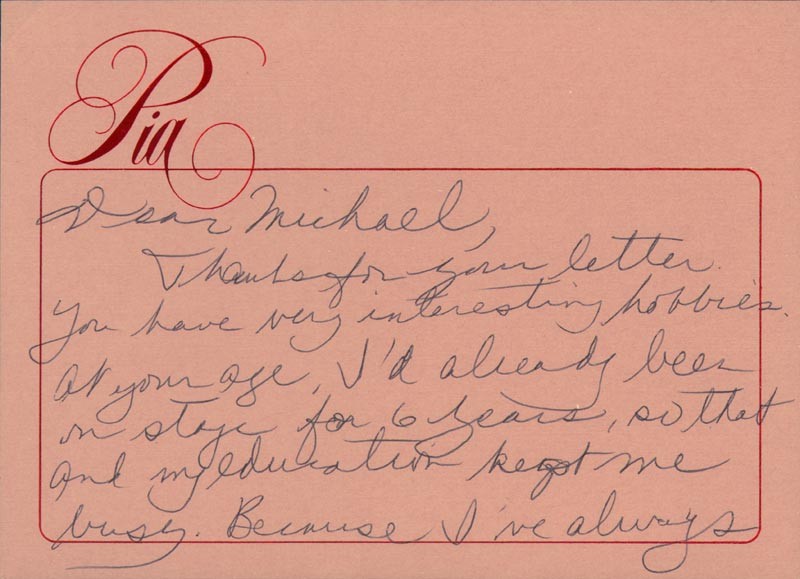 Pia
Dear Michael,
Thanks for your letter.
You have very interesting hobbies.
At your age, I'd already been
on stage for 6 years, so that
and my education kept me
busy. Because I've always